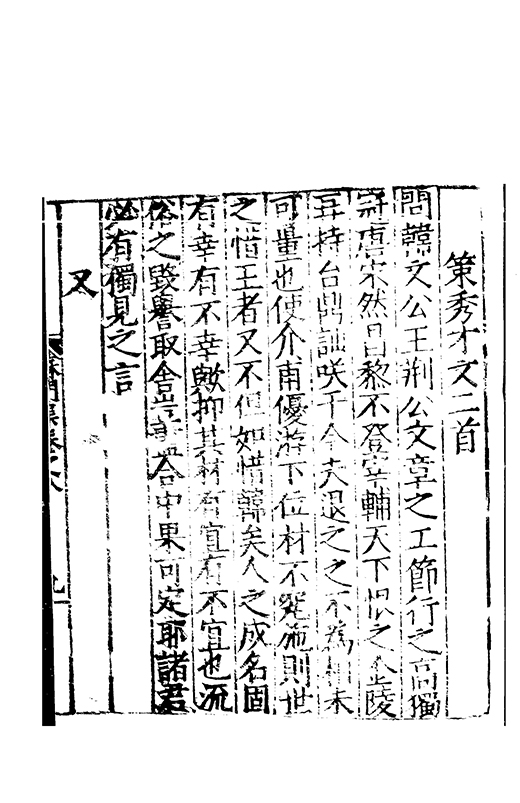 策秀才文二首
問韓文公王荆公文章之工節行之高獨
冠唐宋然昌黎不登宰輔天下恨之金陵
再持台鼎訕咲于今夫退之之不爲相未
可量也使介甫優游下位材不究施則世
之惜王者又不但如惜韓矣人之成名固
有幸有不幸歟抑其材有宜有不宜也流
俗之毀譽取舍豈盡合中果可定耶諸君
必有獨見之言
又
集卷之八
九